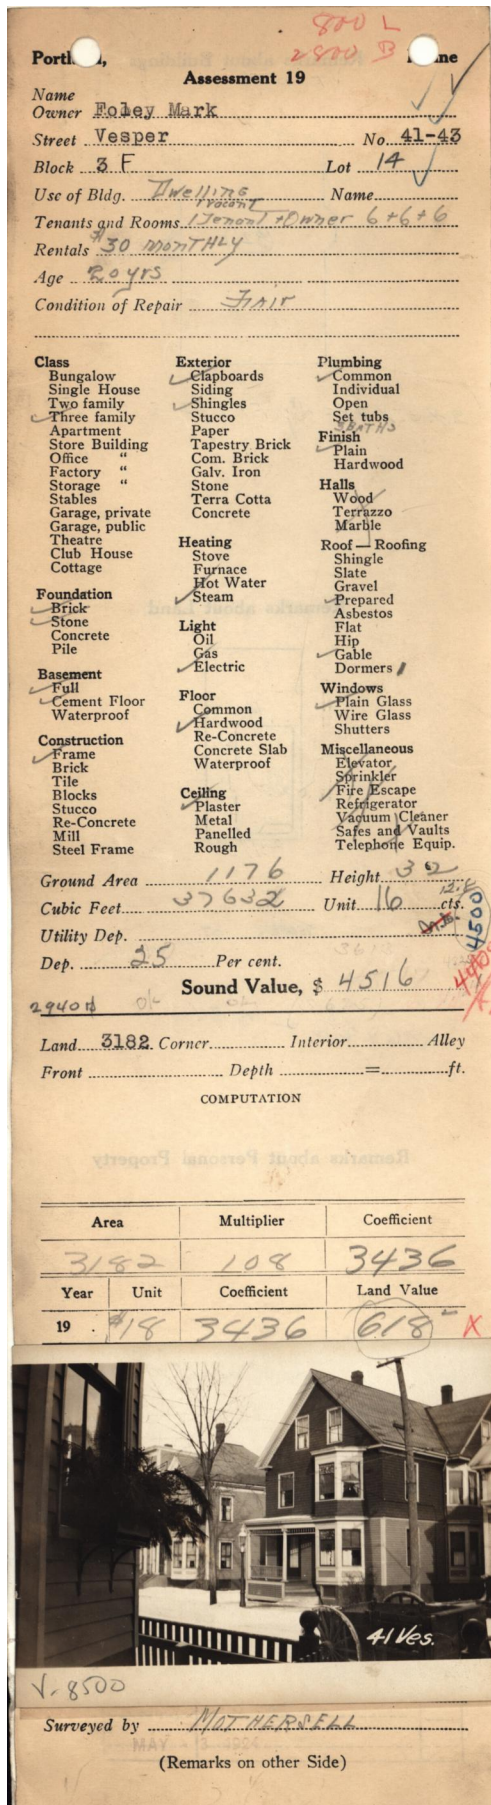 800 L
2800 B
Portland, Maine
Assessment 19
Name
Owner Foley Mark
Street Vesper No. 41-43
Block 3 F Lot 14
Use of Bldg. Dwelling Name
vacant
Tenants and Rooms 1 Tenant + Owner 6+6+6
Rentals $30 MONTHLY
Age 20 yrs
Condition of Repair FAIR
Class
Bungalow
Single House
Two family
Three family
Apartment
Store Building
Office "
Factory "
Storage "
Stables
Garage, private
Garage, public
Theatre
Club House
Cottage
Foundation
Brick
Stone
Concrete
Pile
Basement
Full
Cement Floor
Waterproof
Construction
Frame
Brick
Tile
Blocks
Stucco
Re-Concrete
Mill
Steel Frame
Exterior
Clapboards
Siding
Shingles
Stucco
Paper
Tapestry Brick
Com. Brick
Galv. Iron
Stone
Terra Cotta
Concrete
Heating
Stove
Furnace
Hot Water
Steam
Light
Oil
Gas
Electric
Floor
Common
Hardwood
Re-Concrete
Concrete Slab
Waterproof
Ceiling
Plaster
Metal
Panelled
Rough
Plumbing
Common
Individual
Open
Set tubs
3 BATHS
Finish
Plain
Hardwood
Halls
Wood
Terrazzo
Marble
Roof — Roofing
Shingle
Slate
Gravel
Prepared
Asbestos
Flat
Hip
Gable
Dormers 1
Windows
Plain Glass
Wire Glass
Shutters
Miscellaneous
Elevator
Sprinkler
Fire Escape
Refrigerator
Vacuum Cleaner
Safes and Vaults
Telephone Equip.
Ground Area 1176 Height 32
Cubic Feet 37632 Unit 16 cts.
4500
Utility Dep.
Dep. 25 Per cent.
Sound Value, $ 4516
2940
Land 3182 Corner Interior Alley
Front Depth = ft.
COMPUTATION
Area Multiplier Coefficient
3182 108 3436
Year Unit Coefficient Land Value
19 $18 3436 618
41 Ves.
V-8500
Surveyed by MOTHERSELL
(Remarks on other Side)